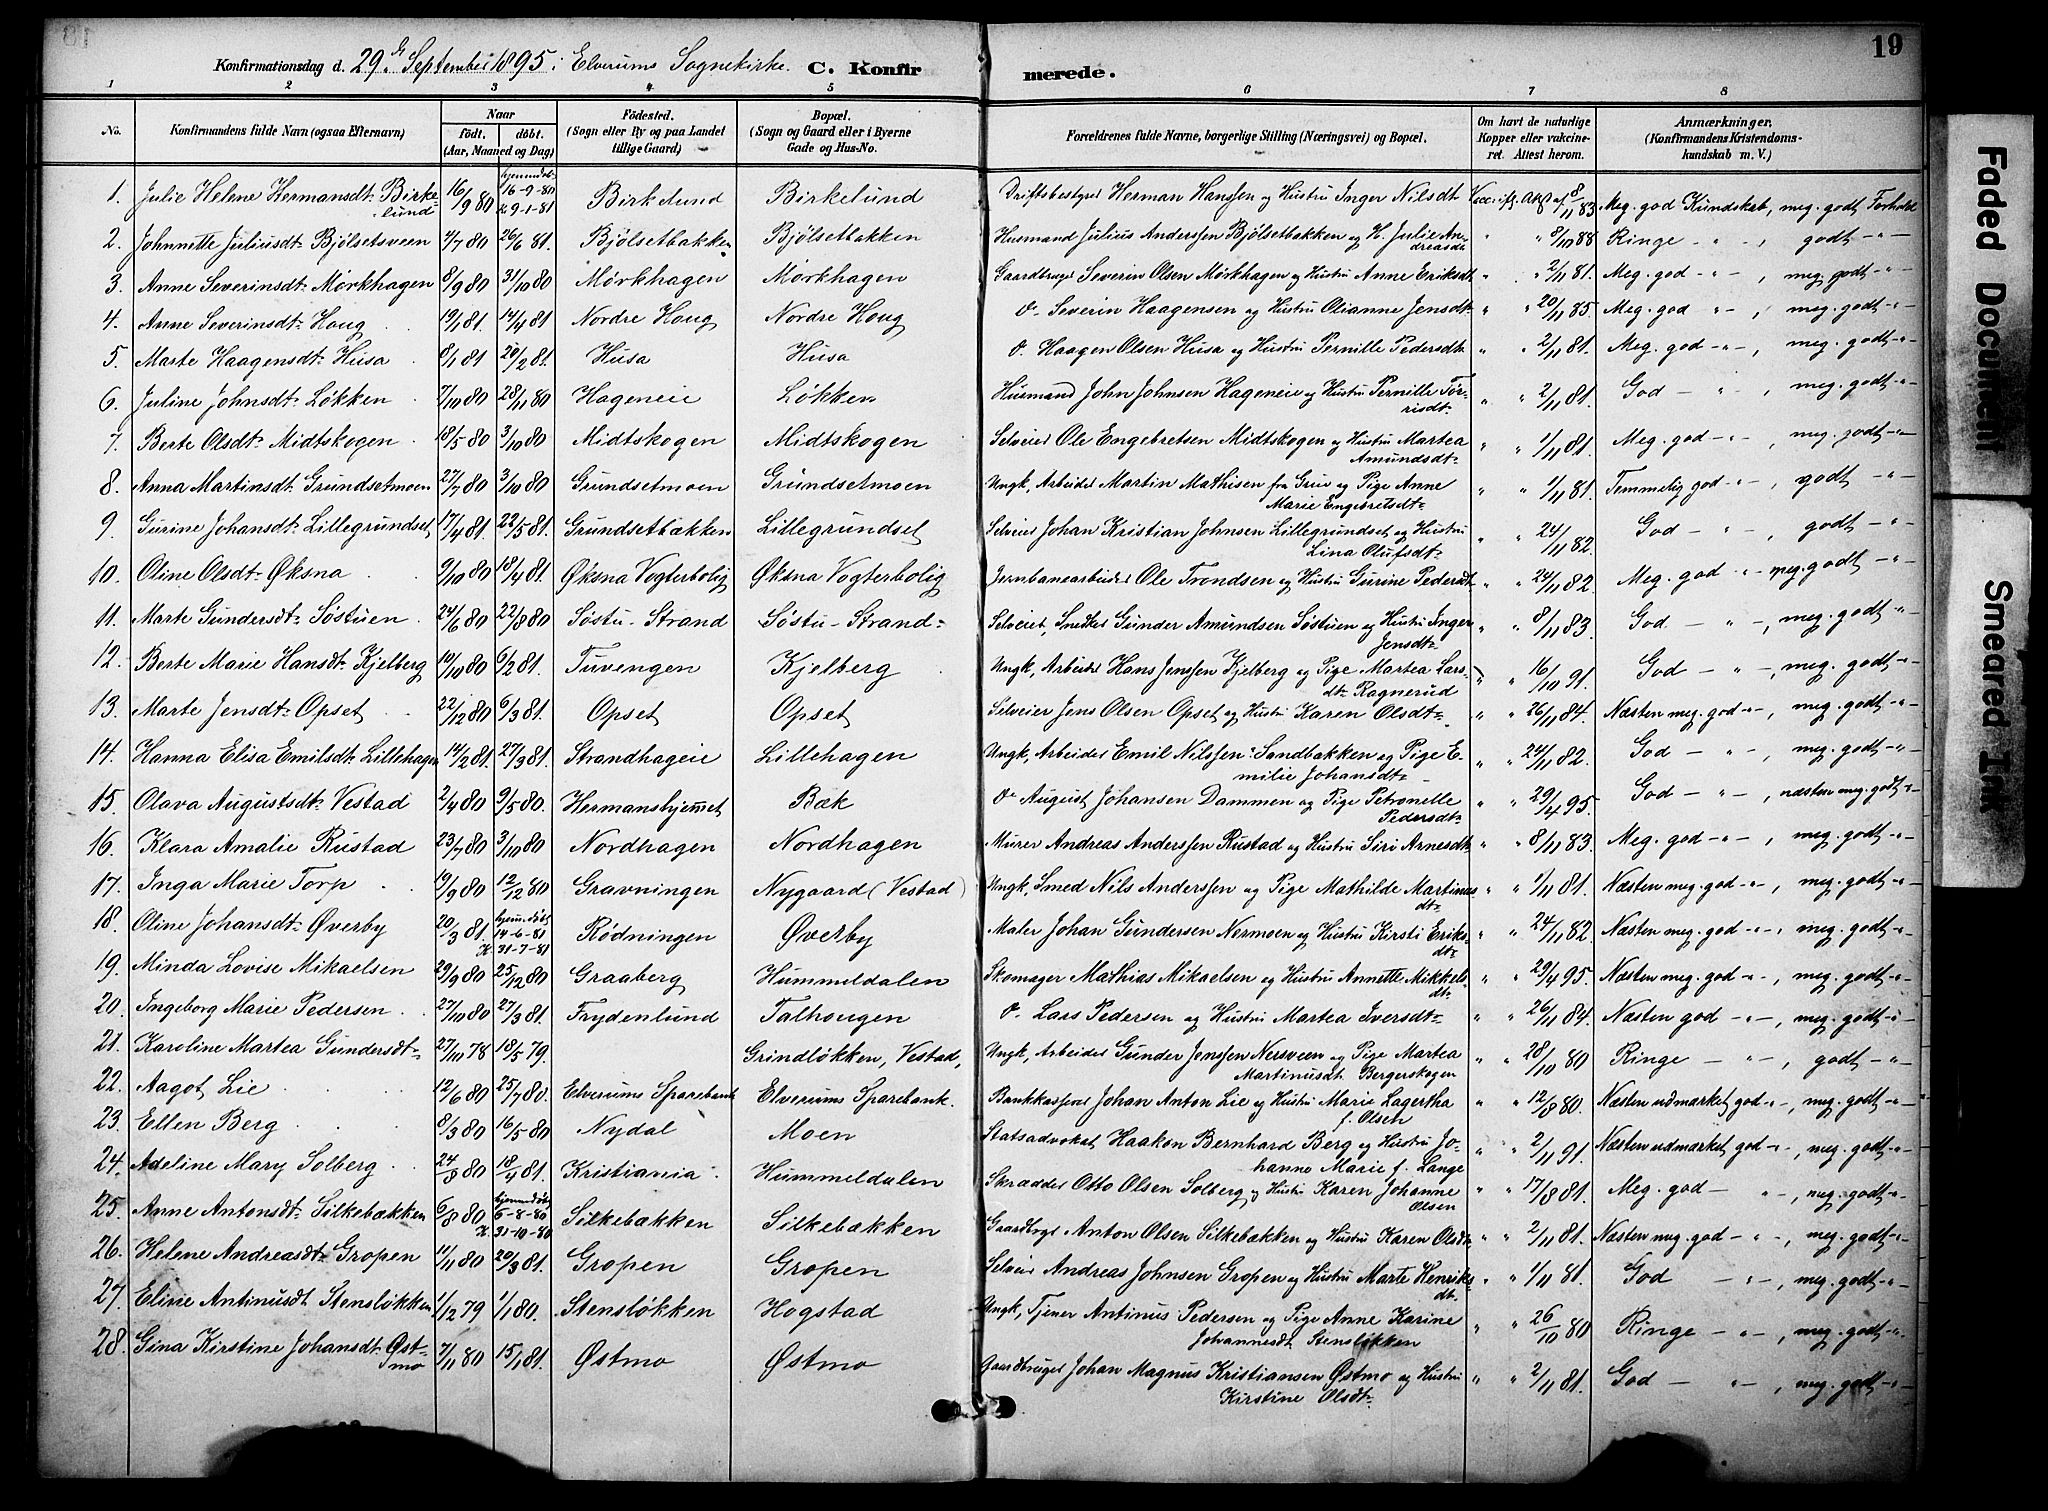 19
Konfirmationsdag d. 29de September 1895 i Elverums Sognekirke. C. Konfirmerede.
1 2 3 4 5 6 7 8
No. Konfirmandens fulde Navn (ogsaa Efternavn) Naar født. døbt. (Aar, Maaned og Dag) Födested. (Sogn eller By og paa Landet tillige Gaard) Bopæl. (Sogn og Gaard eller i Byerne Gade og Hus-No. Forældrenes fulde Navne, borgerlige Stilling (Næringsvei) og Bopæl. Om havt de naturlige Kopper eller vakcineret. Attest herom. Anmærkninger, (Konfirmandens Kristendomskundskab m. V.)
1. Julie Helene Hermansdt. Birkelund 16/9 80 hjemmedøbt 16-9-80 K 9-1-81 Birkelund Birkelund Driftsbestyrer Herman Hanssen og Hustru Inger Nilsdt 8/11 83 Meg. god Kundskab, meg. godt Forhold
2. Johnnette Juliusdt. Bjølsetsveen 4/7 80 26/6 81. Bjølsetbakken Bjølsetbakken Husmand Julius Anderssen Bjølsetbakken og H. Julie Andreasdt " " 8/10 88 Ringe - " -, godt - " -
3. Anne Severinsdt. Mørkhagen 8/9 80 31/10 80 Mørkhagen Mørkhagen Gaardbruger Severin Olsen Mørkhagen og Hustru Anne Eriksdt " " 2/11 81. Meg. god - " -, meg. godt - " -
4. Anne Severinsdt. Houg 19/1 81. 14/4 81 Nordre Houg Nordre Houg do Severin Haagensen og Hustru Olianne Jensdt " " 20/11 85. Meg. god - " -, meg. godt - " -
5. Marte Haagensdt. Husa 8/1 81 20/2 81. Husa Husa do. Haagen Olsen Husa og Hustru Pernille Pedersdt. " " 2/11 81. Meg. god - " -, meg. godt - " -
6. Juline Johnsdt. Løkken 7/10 80 28/11 80 Hageneie Løkken Husmand John Johnsen Hageneie og Hustru Pernille Tørrisdt. " " 2/11 81. God - " -, meg. godt - " -
7. Berte Olsdt. Midtskogen 18/5 80 3/10 80 Midtskogen Midtskogen Selveier Ole Engebretsen Midtskogen og Hustru Martea Amundsdt. " " 1/11 81. Meg. god - " -, meg. godt - " -
8. Anna Martinsdt. Grundsetmoen 27/7 80 3/10 80 Grundsetmoen Grundsetmoen Ungk, Arbeider Martin Mathisen fra Grue og Pige Anne Marie Engebretsdt. " " 1/11 81. Temmelig god - " -, godt - " -
9. Gurine Johansdt. Lillegrundset 17/4 81. 22/5 81. Grundsetbækken Lillegrundset Selveier Johan Kristian Johnsen Lillegrundset og Hustru Lina Olufsdt. " " 24/11 82. God - " -, godt - " -
10. Oline Olsdt. Øksna 9/10 80 18/4 81. Øksna Vogterbolig Øksna Vogterbolig Jernbanearbeider Ole Trondsen og Hustru Gurine Pedersdt " " 24/11 82. Meg. god - " - meg. godt - " -
11. Marte Gundersdt. Søstuen 24/6 80 22/8 80 Søstu-Strand Søstu-Strand Selveier, Snedker Gunder Amundsen Søstuen og Hustru Inger Jensdt. " " 8/11 83. God - " -, meg. godt - " -
12. Berte Marie Hansdt. Kjelberg 10/10 80 6/2 81. Tuvengen Kjelberg Ungk, Arbeider Hans Jenssen Kjelberg og Pige Martea Larsdt. Ragnerud " " 16/10 91. God - " -, meg. godt - " -
13. Marte Jensdt. Opset 22/12 80 6/3 81. Opset Opset Selveier Jens Olsen Opset og Hustru Karen Olsdt. " " 26/11 84. Næsten meg. god - " -, meg. godt - " -
14. Hanna Elisa Emilsdt. Lillehagen 14/2 81. 27/3 81. Strandhageie Lillehagen Ungk, Arbeider Emil Nilssen Sandbakken og Pige Emilie Johansdt. " " 24/11 82. God - " -, meg. godt - " -
15. Olava Augustsdt. Vestad 2/4 80 9/5 80. Hermanshjemmet Bæk do August Johansen Dammen og Pige Petronelle Pedersdt. " " 29/4 95. God - " -, næsten meg. godt - " -
16. Klara Amalie Rustad 23/7 80 3/10 80 Nordhagen Nordhagen Murer Andreas Anderssen Rustad og Hustru Siri Arnesdt. " " 8/11 83. Meg. god - " -, meg. godt - " -
17. Inga Marie Torp 19/9 80 12/2 80 Gravningen Nygaard (Vestad) Ungk, Smed Nils Anderssen og Pige Mathilde Martinusdt. " " 1/11 81. Næsten meg. god - " -, meg. godt - " -
18. Oline Johansdt. Øverby 20/3 81. hjemmedøbt 14-6-81 K. 31-7-81 Rødningen Øverby Maler Johan Gundersen Nermoen og Hustru Kirsti Eriksdt. " " 24/11 82. Næsten meg. god - " -, meg. godt - " -
19. Minda Lovise Mikaelsen 29/9 80 25/12 80 Graaberg Hummeldalen Skomager Mathias Mikaelsen og Hustru Annette Mikkelsdt. " " 29/4 95. Næsten meg. god - " -, meg. godt - " -
20. Ingeborg Marie Pedersen 27/10 80 27/3 81. Frydenlund Talhougen do. Lars Pedersen og Hustru Martea Iversdt. " " 26/11 84. Næsten god - " -, meg. godt - " -
21. Karoline Martea Gundersdt. 27/10 78 18/5 79. Grindløkken, Vestad, Ungk, Arbeider Gunder Jenssen Nersveen og Pige Martea Martinusdt. Bergerskogen " " 28/10 80 Ringe - " -, godt - " -
22. Aagot Lie 12/6 80 25/7 80. Elverums Sparebank Elverums Sparebank. Bankkasserer Johan Anton Lie og Hustru Marie Lagertha f. Olsen " " 12/8 80. Næsten udmarket god - " -, meg. godt - " -
23. Ellen Berg 8/3 80 16/5 80 Nydal Moen Statsadvokat Haakon Bernhard Berg og Hustru Johanne Marie f. Lange " " 2/11 91. Næsten udmarket god - " -, meg. godt - " -
24. Adeline Mary Solberg 24/8 80 18/4 81. Kristiania Hummeldalen Skrædder Otto Olsen Solberg og Hustru Karen Johanne Olsen " " 17/8 81. Meg. god - " -, meg. godt - " -
25. Anne Antonsdt. Silkebækken 6/8 80 hjemmedøbt 6-8-80 K. 31-10-80 Silkebækken Silkebækken Gaardbrgr Anton Olsen Silkebækken og Hustru Karen Olsdt. " " 2/11 81. Næsten meg. god - " -, meg. godt - " -
26. Helene Andreasdt. Gropen 11/11 80 20/3 81. Gropen Gropen Selveier Andreas Johnsen Gropen og Hustru Marte Henriksdt. " " 1/11 81. God - " -, meg. godt - " -
27. Eline Antinusdt. Stensløkken 1/12 79 1/1 80. Stensløkken Hogstad Ungk, Tjener Antinus Pedersen og Pige Anne Karine Johannesdt. Stensløkken " " 26/10 80 Ringe - " -, meg. godt - " -
28. Gina Kirstine Johansdt. Østmo 7/11 80 15/1 81. Østmo Østmo Gaardbruger Johan Magnus Kristiansen Østmo og Hustru Kirstine Olsdt. " " 2/11 81. God - " -, meg. godt - " -
Faded Document
Smeared Ink